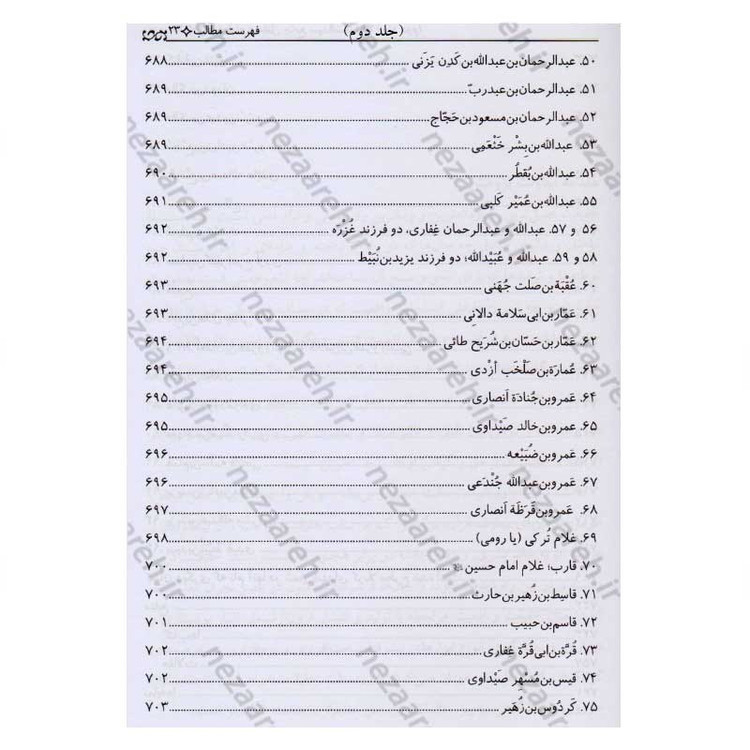 (جلد دوم) فهرست مطالب ۲۳
۵۰. عبدالرحمان بن عبدالله بن کَدِن یَزَنی ۶۸۸
۵۱. عبدالرحمان بن عبدربّ ۶۸۹
۵۲. عبدالرحمان بن مسعود بن حَجّاج ۶۸۹
۵۳. عبدالله بن بِشْر خَثْعَمِی ۶۸۹
۵۴. عبدالله بن بُقطُر ۶۹۰
۵۵. عبدالله بن عُمَیْر کَلبی ۶۹۱
۵۶ و ۵۷. عبدالله و عبدالرحمان غِفاری، دو فرزند عُزْرَه ۶۹۲
۵۸ و ۵۹. عبدالله و عُبَیْدالله؛ دو فرزند یزید بن نُبَیْط ۶۹۲
۶۰. عُقْبَة بن صَلت جُهَنی ۶۹۳
۶۱. عَمّار بن ابی سَلامة دالانِی ۶۹۳
۶۲. عَمّار بن حَسّان بن شُرَیح طائی ۶۹۴
۶۳. عُمارَة بن صَلْخَب أزْدی ۶۹۴
۶۴. عَمرو بن جُنادَة اَنصاری ۶۹۵
۶۵. عمرو بن خالد صَیْداوی ۶۹۵
۶۶. عَمرو بن ضُبَیْعه ۶۹۶
۶۷. عَمرو بن عبدالله جُنْدَعی ۶۹۶
۶۸. عَمرو بن قَرَظَة اَنصاری ۶۹۷
۶۹. غلام تُرکی (یا رومی) ۶۹۸
۷۰. قارِب؛ غلام امام حسین ۷۰۰
۷۱. قاسِط بن زُهَیر بن حارث ۷۰۰
۷۲. قاسم بن حبیب ۷۰۱
۷۳. قُرَّة بن ابی قُرَّة غِفاری ۷۰۲
۷۴. قیس بن مُسْهِر صَیْداوی ۷۰۲
۷۵. کَردُوس بن زُهَیر ۷۰۳
nezaareh.ir